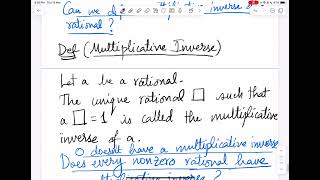 Can we
inverse
rational?
Def (Multiplicative Inverse)
Let a be a rational.
The unique rational □ such that
a □ = 1 is called the multiplicative
inverse of a.
0 doesnt have a multiplicative inverse
Does every nonzero rational have
inverse?